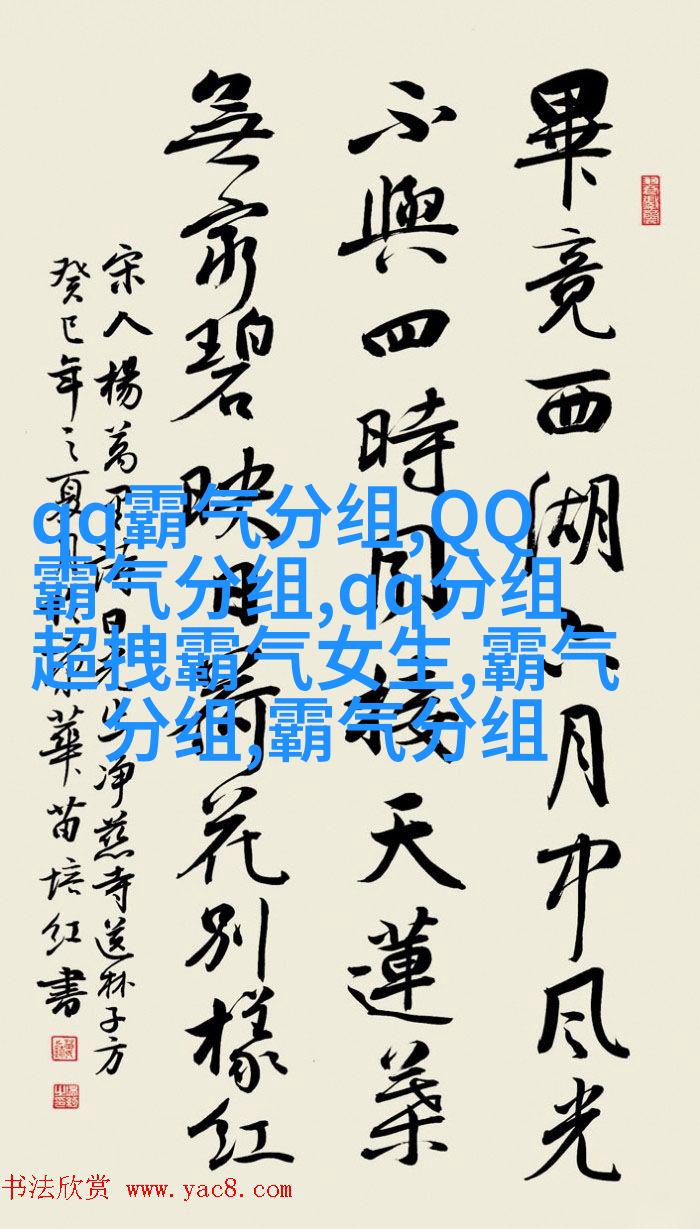 畢竟西湖六月中风光
不與四時同接天蓮葉
無窮碧映日荷花别様红
宋人楊萬里詩曉出净慈寺送林子方
癸巳年之夏月 華苗培红書
qq霸气分组,QQ
霸气分组,qq分组
超拽霸气女生,霸气
分组,霸气分组
书法欣赏 www.yac8.com